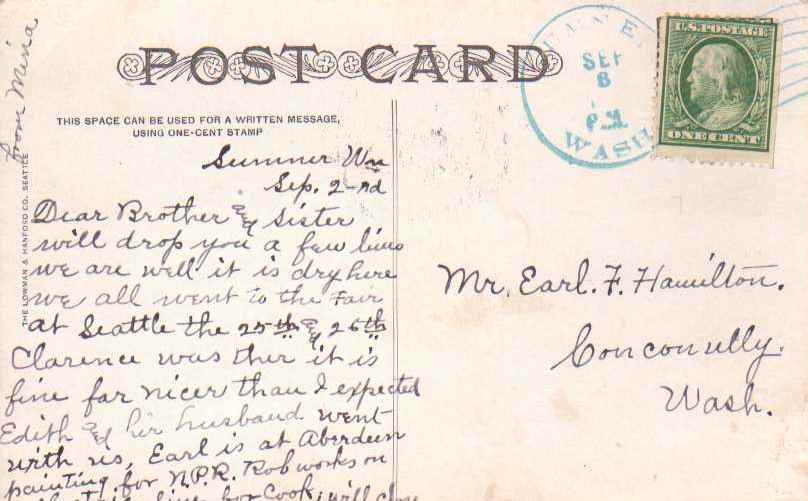 from Mina
POST CARD
THIS SPACE CAN BE USED FOR A WRITTEN MESSAGE,
USING ONE-CENT STAMP
THE LOWMAN & HANFORD CO. SEATTLE
Sumner Wn
Sep. 2-nd
Dear Brother & Sister
will drop you a few lines
we are well it is dry here
we all went to the Fair
at Seattle the 25th & 26th
Clarence was ther it is
fine far nicer than I expected
Edith & her husband went
with us, Earl is at Aberdeen
painting for N.P.R. Rob works on
line for Cook, will close
Mr. Earl. F. Hamilton.
Conconully.
Wash.
SEP
8
P.M.
WASH
U.S. POSTAGE
ONE CENT